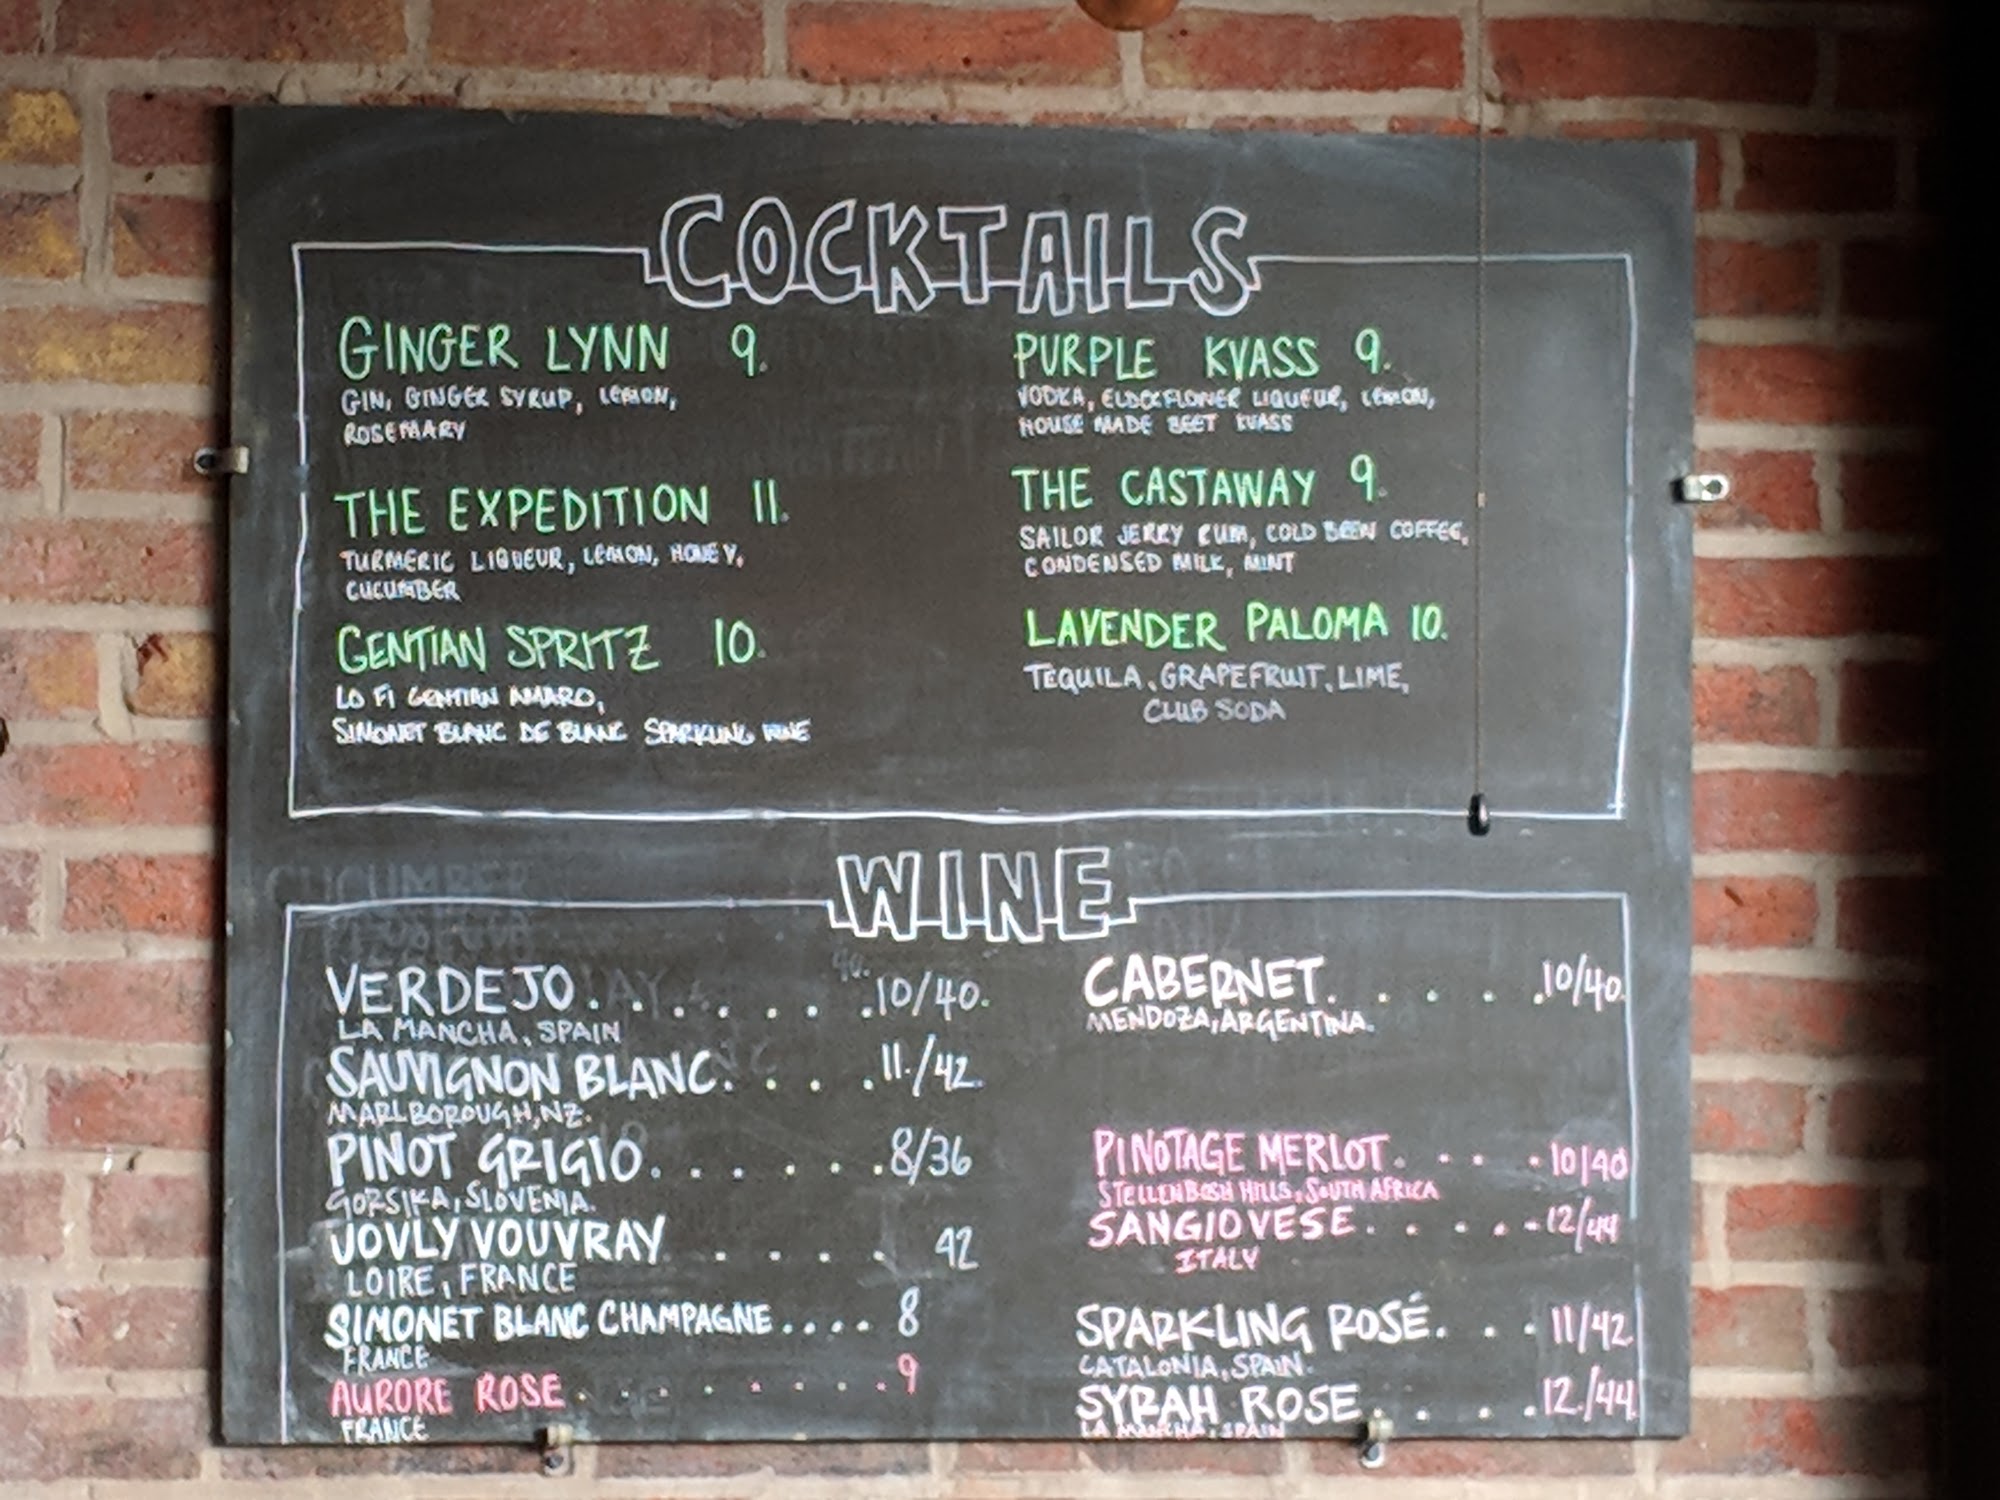 COCKTAILS
GINGER LYNN 9.
GIN, GINGER SYRUP, LEMON,
ROSEMARY
THE EXPEDITION 11.
TURMERIC LIQUEUR, LEMON, HONEY,
CUCUMBER
GENTIAN SPRITZ 10.
LO FI GENTIAN AMARO,
SIMONET BLANC DE BLANC SPARKLING WINE
PURPLE KVASS 9.
VODKA, ELDERFLOWER LIQUEUR, LEMON,
HOUSE MADE BEET KVASS
THE CASTAWAY 9.
SAILOR JERRY RUM, COLD BREW COFFEE,
CONDENSED MILK, MINT
LAVENDER PALOMA 10.
TEQUILA, GRAPEFRUIT, LIME,
CLUB SODA
WINE
VERDEJO. . . . . . . 10/40.
LA MANCHA, SPAIN
SAUVIGNON BLANC. . . . 11./42.
MARLBOROUGH, NZ.
PINOT GRIGIO. . . . . . . 8/36
GORSIKA, SLOVENIA.
JOVLY VOUVRAY . . . . . 42
LOIRE, FRANCE
SIMONET BLANC CHAMPAGNE.... 8
FRANCE
AURORE ROSE . . . . . . . . 9
FRANCE
CABERNET. . . . . .10/40.
MENDOZA, ARGENTINA.
PINOTAGE MERLOT. . . . 10/40
STELLENBOSH HILLS, SOUTH AFRICA
SANGIOVESE . . . . . 12/44
ITALY
SPARKLING ROSÉ. . . . 11/42
CATALONIA, SPAIN.
SYRAH ROSE. . . . .12./44.
LA MANCHA, SPAIN